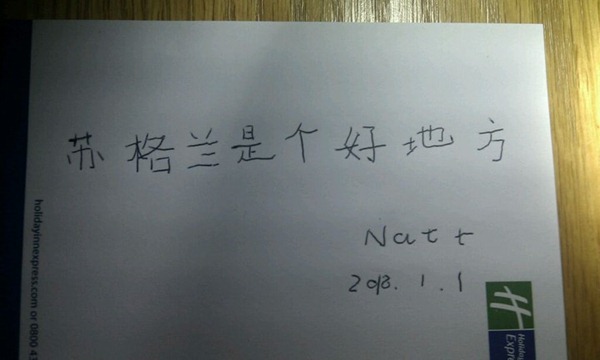 苏格兰是个好地方
Natt
2013.1.1
holidayinnexpress.com or 0800 43
Holiday
Expr